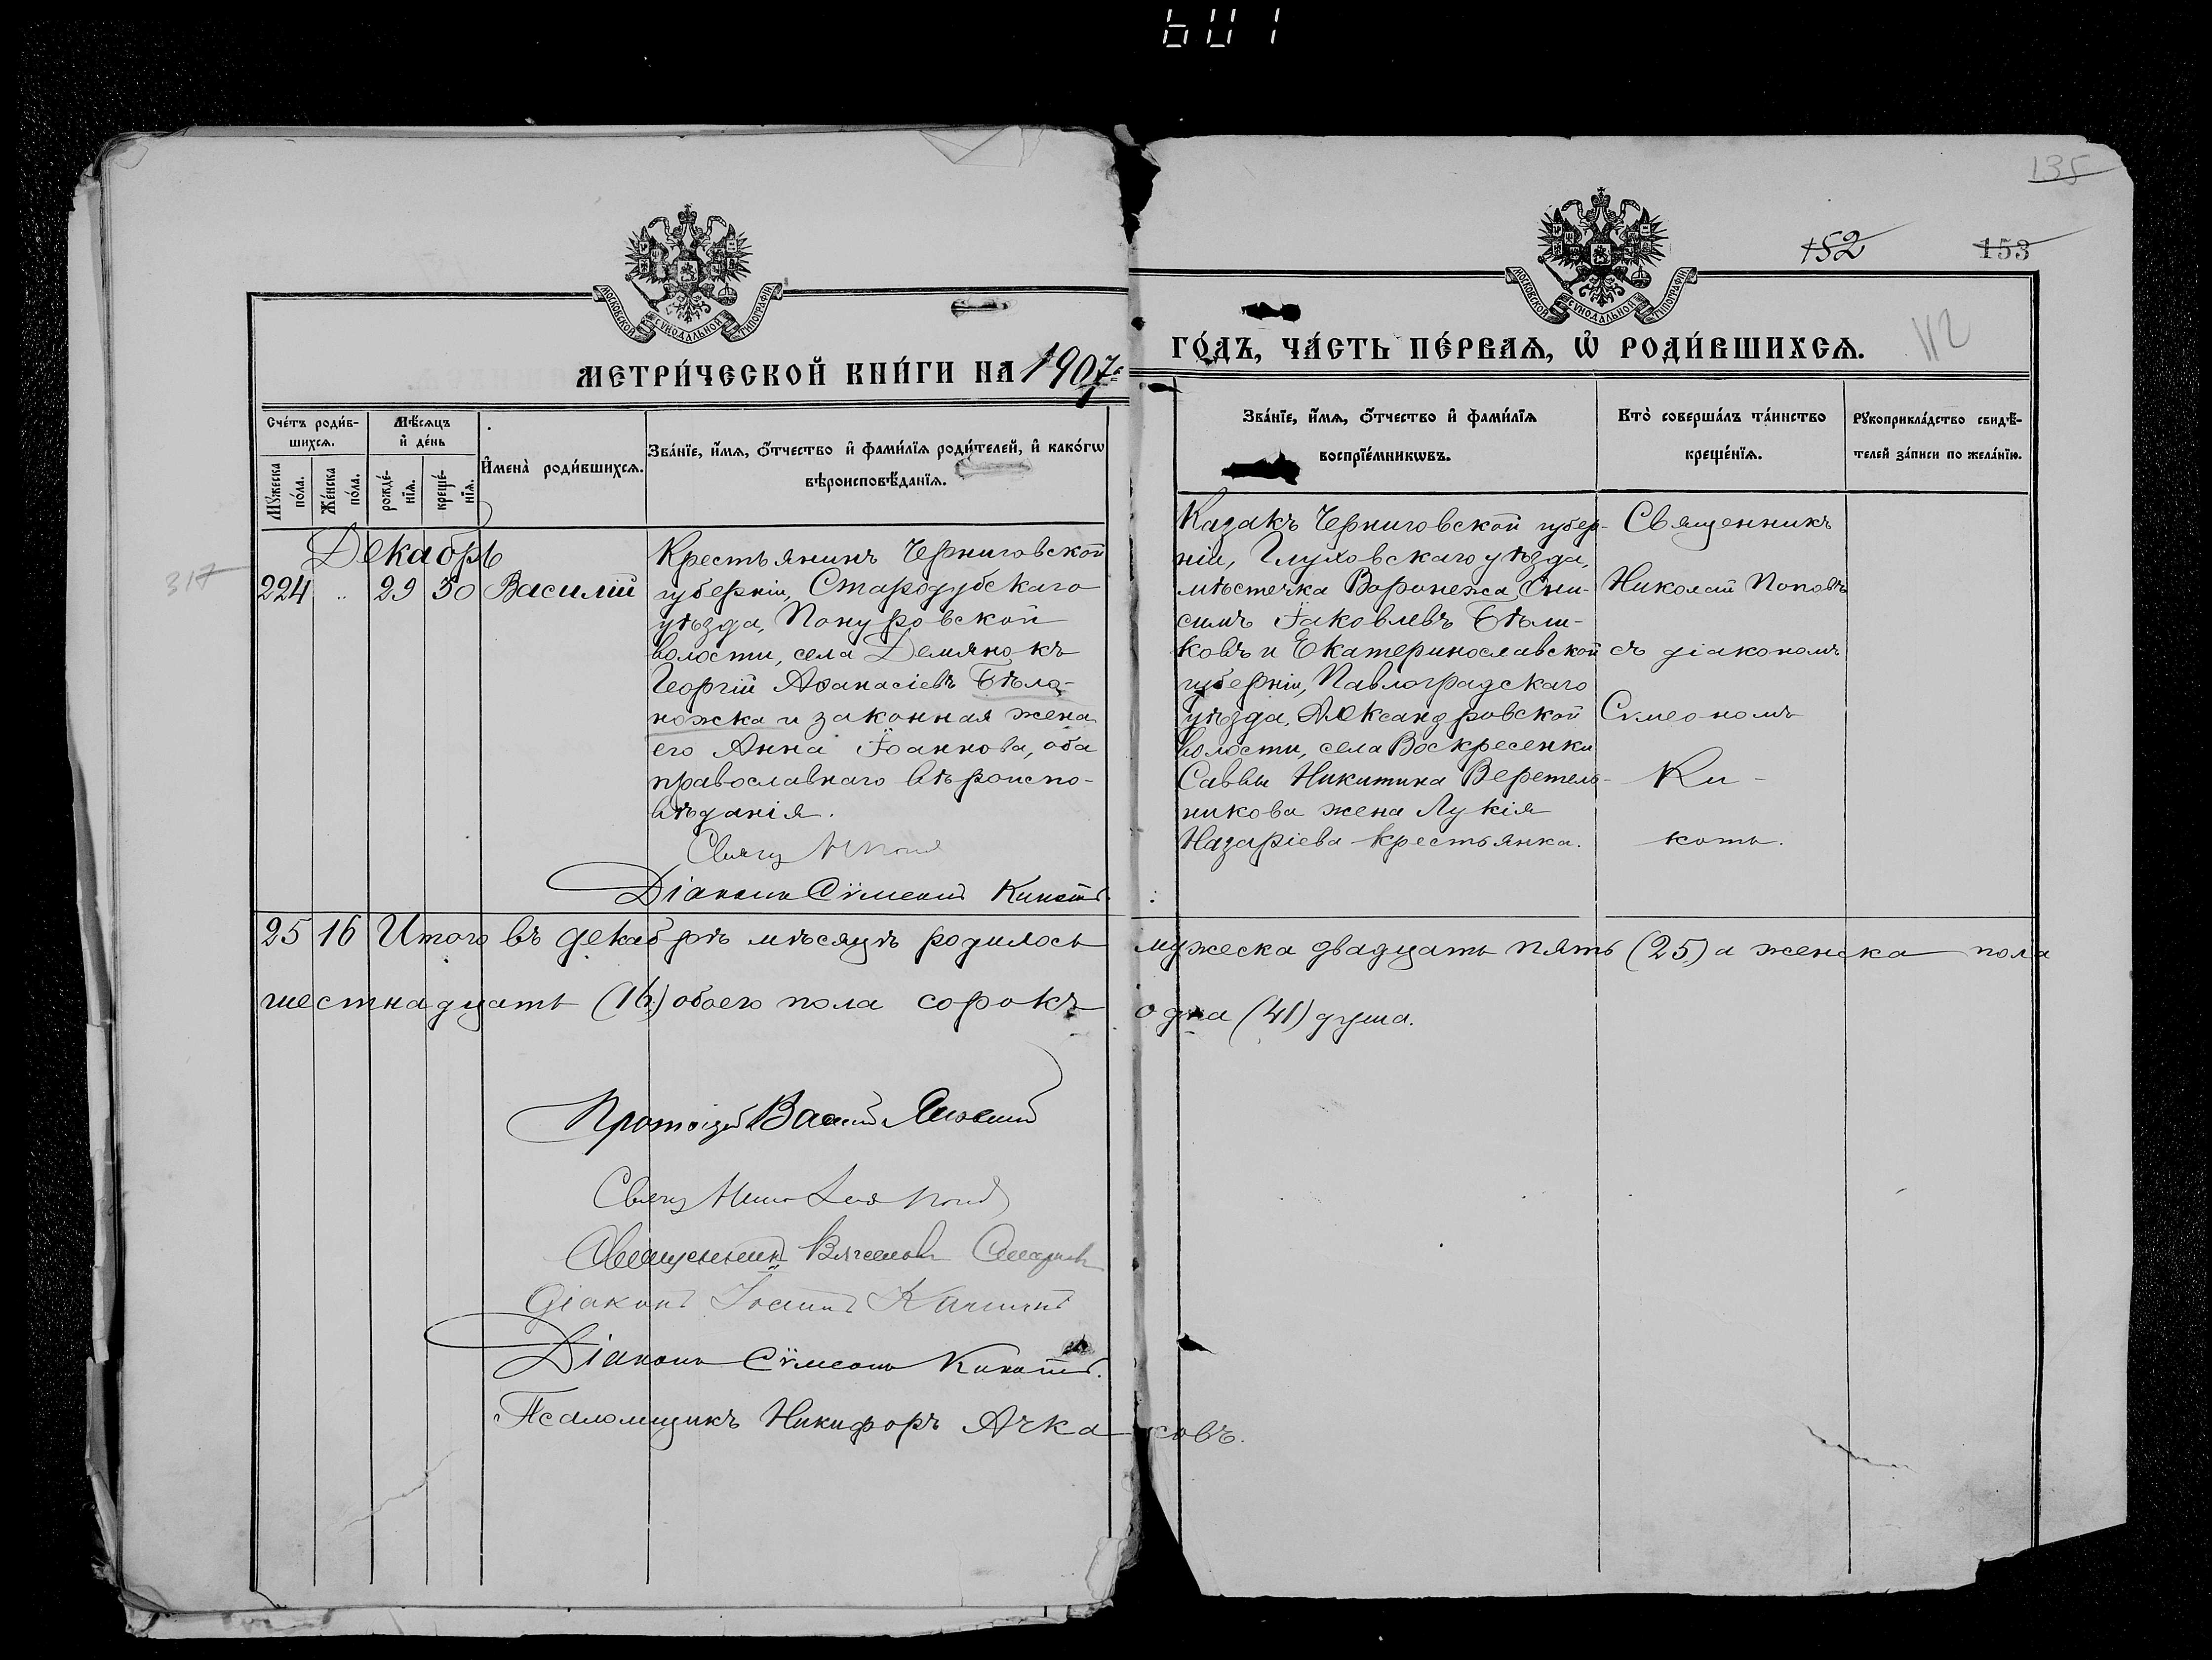 601
135
152 153
112
МОСКОВСКОЙ СѴНОДАЛЬНОЙ ТИПОГРАФІИ
МОСКОВСКОЙ СѴНОДАЛЬНОЙ ТИПОГРАФІИ
МЕТРИ́ЧЕСКОЙ КНИ́ГИ НА 1907 ГО́ДЪ, ЧА́СТЬ ПЕ́РВАѦ, Ѡ РОДИ́ВШИХСѦ.
Сче́тъ роди́в-
шихсѧ.
Мѣ́сѧцъ
и҆ де́нь
Мꙋ́жеска
по́ла.
Же́нска
по́ла.
рожде́-
нїѧ.
креще́-
нїѧ.
И҆мена̀ роди́вшихсѧ.
Зва́нїе, и҆́мѧ, о҆́тчество и҆ фами́лїѧ роди́телей, и҆ како́гѡ
вѣроисповѣ́данїѧ.
Зва́нїе, и҆́мѧ, о҆́тчество и҆ фами́лїѧ
воспрїе́мникѡвъ.
Кто̀ соверша́лъ та́инство
креще́нїѧ.
Рꙋкоприкла́дство свидѣ́-
телей за́писи по жела́нїю.
Декабрь
317
224 „ 29 30 Василій
Крестьянинъ Черниговской
губерніи, Стародубскаго
уѣзда, Понуровской
волости, села Демянокъ
Георгій Аѳанасіевъ Бѣло-
ножка и законная жена
его Анна Іоаннова, оба
православнаго вѣроиспо-
вѣданія.
Свящ. Н Попов
Діаконъ Сѵмеонъ Кикоть.
Казакъ Черниговской губер-
ніи, Глуховскаго уѣзда,
мѣстечка Воронежа Они-
симъ Іаковлевъ Бѣли-
ковъ и Екатеринославской
губерніи, Павлоградскаго
уѣзда, Александровской
волости, села Воскресенки
Саввы Никитина Веретель-
никова жена Лукія
Назаріева крестьянка.
Священникъ
Николай Поповъ
съ діакономъ
Сѵмеономъ
Ки-
коть.
25 16 Итого въ декабрѣ мѣсяцѣ родилось мужеска двадцать пять (25) а женска пола
шестнадцать (16) обоего пола сорокъ одна (41) душа.
Протоіерей Василій
Свящ Николай Попов
Священникъ
Діаконъ Іоаннъ
Діаконъ Сѵмеонъ Кикоть.
Псаломщикъ Никифоръ Ачкасовъ.